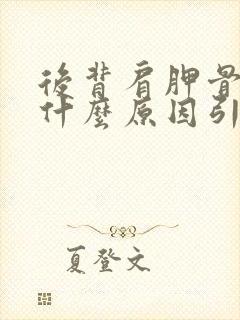 後背肩胛骨
什麼原因引
夏登文